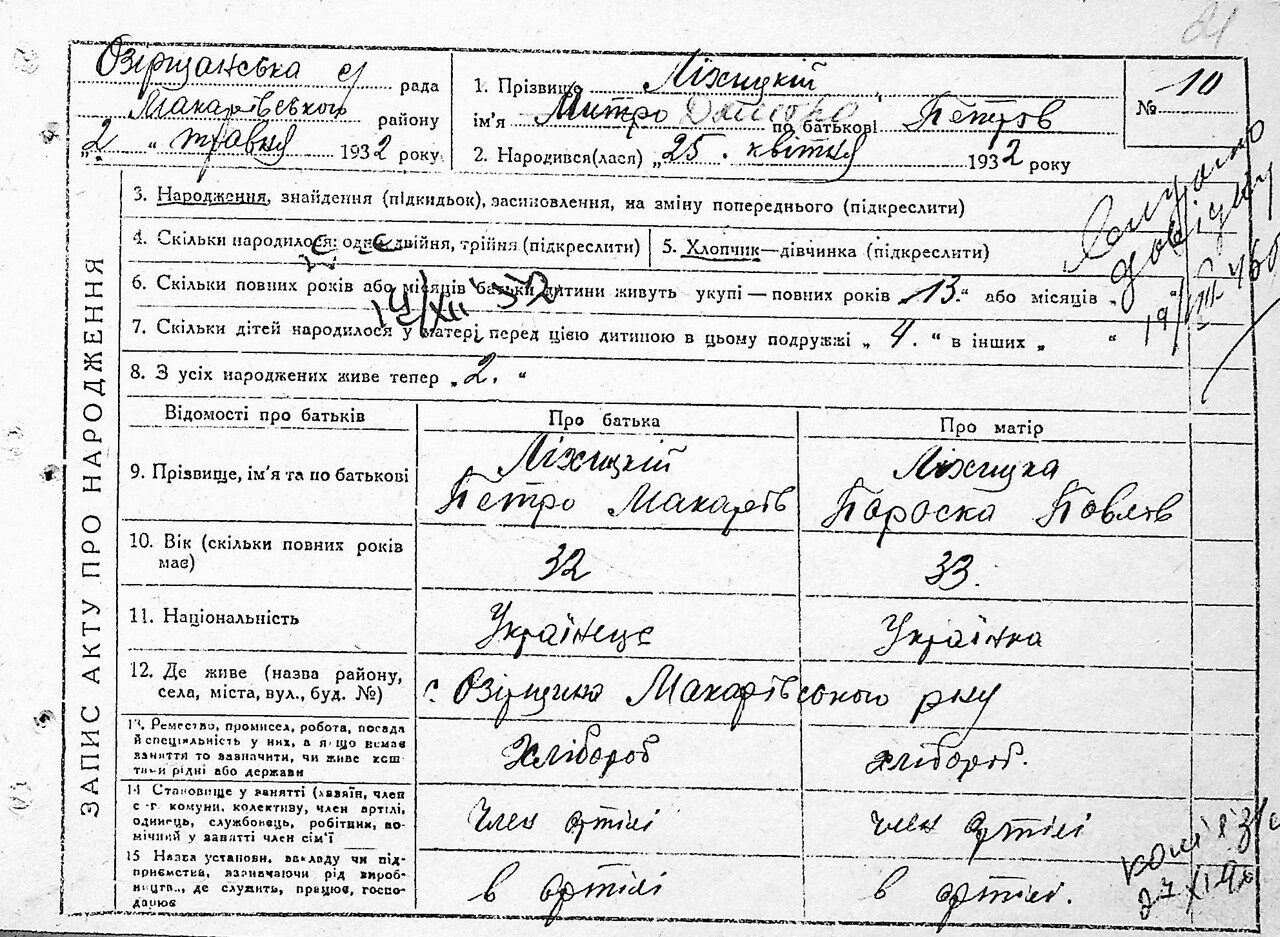 21
Озірщанська с/ рада
Макарівського району
„2“ травня 1932 року
1. Прізвище Ліхицкій
ім'я Митро по батькові Петров
2. Народився(лася) „25. квітня 1932 року
№ 10
ЗАПИС АКТУ ПРО НАРОДЖЕННЯ
3. Народження, знайдення (підкидьок), засиновлення, на зміну попереднього (підкреслити)
4. Скільки народилося: одно, двійня, трійня (підкреслити)
5. Хлопчик—дівчинка (підкреслити)
6. Скільки повних років або місяців батьки дитини живуть укупі — повних років „13.“ або місяців „
14/XII 32
7. Скільки дітей народилося у матері перед цією дитиною в цьому подружжі „ 4. “ в інших „ “
8. З усіх народжених живе тепер „2. “
довідку
19/III 46
Відомості про батьків Про батька Про матір
9. Прізвище, ім'я та по батькові
Ліхицкій Ліхицка
Петро Макарів Пороска Повлів
10. Вік (скільки повних років має) 32 33.
11. Національність Українець Українка
12. Де живе (назва району, села, міста, вул., буд. №) с. Озірщина Макарівського рну
13. Ремество, промисел, робота, посада
й спеціяльність у них, а якщо немає
заняття то зазначити, чи живе кош
тами рідні або держави
Хлібороб хлібороб.
14 Становище у занятті (хазяїн, член
с.-г. комуни, колективу, член артілі,
одинець, службовець, робітник, по-
мічний у занятті член сім'ї
Член артілі член артілі
15 Назва установи, закладу чи під-
приємства, зазначаючи рід вироб-
ництва, де служить, працює, госпо-
дарює
в артілі в артілі.
27 XI